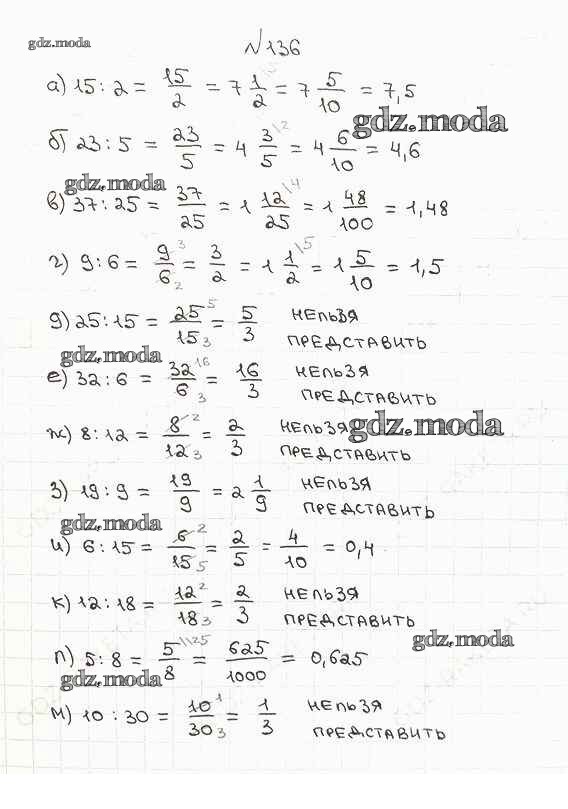 gdz.moda
№136
а) 15 : 2 = 15/2 = 7 1/2 = 7 5/10 = 7,5
gdz.moda
б) 23 : 5 = 23/5 = 4 3/5 \2 = 4 6/10 = 4,6
gdz.moda
в) 37 : 25 = 37/25 = 1 12/25 \4 = 1 48/100 = 1,48
г) 9 : 6 = 9 3/6 2 = 3/2 = 1 1/2 \5 = 1 5/10 = 1,5
д) 25 : 15 = 25 5/15 3 = 5/3 НЕЛЬЗЯ
ПРЕДСТАВИТЬ
gdz.moda
е) 32 : 6 = 32 16/6 3 = 16/3 НЕЛЬЗЯ
ПРЕДСТАВИТЬ
ж) 8 : 12 = 8 2/12 3 = 2/3 НЕЛЬЗЯ
gdz.moda
ПРЕДСТАВИТЬ
з) 19 : 9 = 19/9 = 2 1/9 НЕЛЬЗЯ
ПРЕДСТАВИТЬ
gdz.moda
и) 6 : 15 = 6 2/15 5 = 2/5 = 4/10 = 0,4
к) 12 : 18 = 12 2/18 3 = 2/3 НЕЛЬЗЯ
ПРЕДСТАВИТЬ
gdz.moda
л) 5 : 8 = 5/8 \125 = 625/1000 = 0,625
gdz.moda
м) 10 : 30 = 10 1/30 3 = 1/3 НЕЛЬЗЯ
ПРЕДСТАВИТЬ